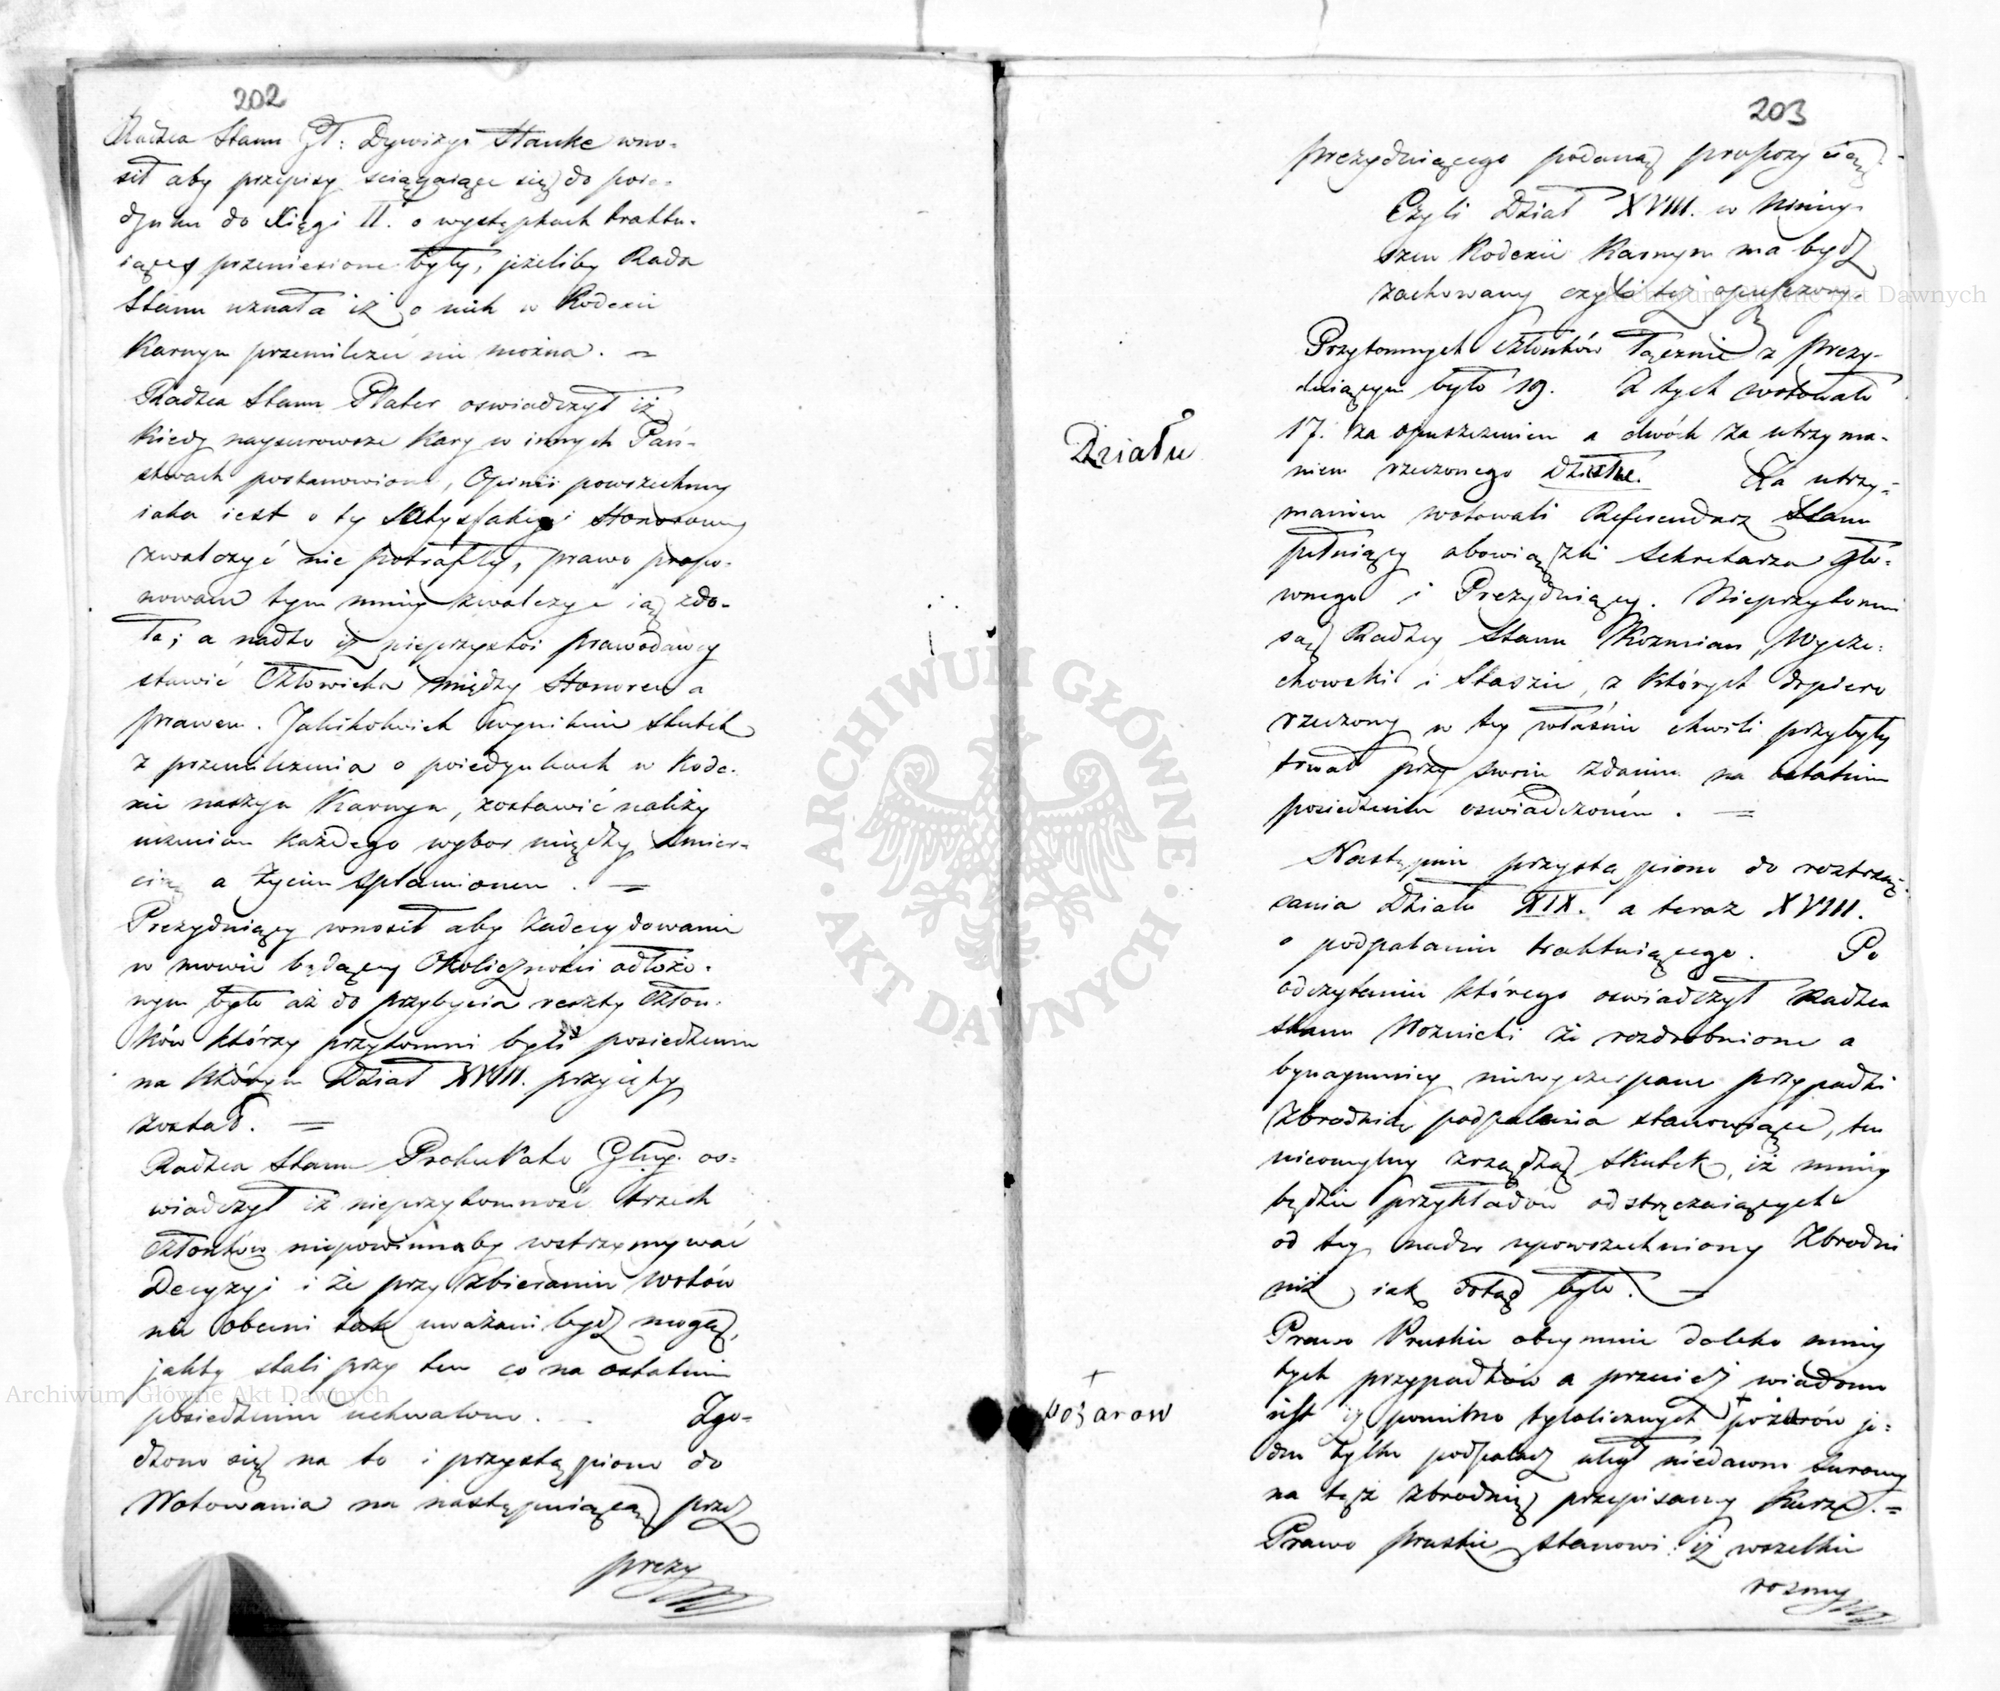 202
Radzca Stanu Gł: Dywizyi Hauke wno-
sił aby przepisy sciągaiące się do poie-
dynku do Xięgi II. o występkach traktu-
iącey przeniesione były, jeżeliby Rada
Stanu uznała iż o nich w Kodexie
Karnym przemilczeć nie można. =
Radzca Stanu Plater oswiadczył iż
kiedy naysurowsze kary w innych Pań-
stwach postanowione, Opinii powszechney
iaka iest o tey Satysfakcyi Honorowey
zwalczyć nie potrafiły, prawo propo-
nowane tym mniey zwalczyć ią zdo-
ła; a nadto iż nieprzystoi prawodawcy
stawić Człowieka między Honorem a
prawem. Jakikolwiek wyniknie skutek
z przemilczenia o poiedynkach w Kode-
xie naszym Karnym, zostawić należy
uznaniu każdego wybor między smier-
cią a życiem splamionem. =
Prezyduiący wnosił aby zadecydowanie
w mowie będącey Okoliczności odłożo-
nym było aż do przybycia reszty Człon-
ków którzy przytomni byli posiedzeniu
na którym Dział XVIII. przyięty
został. =
Radzca Stanu Prokurator os-
wiadczył iż nieprzytomność trzech
Członków niepowinnaby wstrzymywać
Decyzyi i że przy zbieraniu wotów
nie obecni tak uważani bydź mogą,
jakby stali przy tem co na ostatniem
posiedzeniu uchwalono. Zgo-
dzono się na to i przystąpiono do
Wotowania na następuiącą przez
prezy
203
prezyduiącego podaną propozycią:
Czyli Dział XVIII. w Niniey-
szem Kodexie Karnym ma bydź
zachowany czyli też opuszczony.
Przytomnych Członków łącznie z prezy-
duiącym było 19. Z tych wotowało
17. za opuszczeniem a dwóch za utrzyma-
niem rzeczonego Działu. Za utrzy-
maniem wotowali Referendarz Stanu
pełniący obowiązki Sekretarza Głó-
wnego i Prezyduiący. Nieprzytomni
są Radzcy Stanu Kozmian, Wycze-
chowski i Staszic, z których dopiero
rzeczony w tey właśnie chwili przybyły
trwał przy swem zdaniu na ostatniem
posiedzeniu oswiadczonem. =
Działu
Następnie przystąpiono do roztrzą-
sania Działu XIX. a teraz XVIII.
o podpalaniu traktuiącego. Po
odczytaniu którego oswiadczył Radzca
Stanu Woznicki że rozdrobnione a
bynaymniey niewyczerpane przypadki
zbrodnie podpalenia stanowiące, ten
nieomylny zrządzą skutek, iż mniey
będzie przykładów odstręczaiących
od tey nader upowszechnioney Zbrodni
niż jak dotąd było. —
Prawo Pruskie obeymuie daleko mniey
tych przypadków a przecież wiadomo
iest iż pomimo tylolicznych + pożarów je-
den tylko podpalacz uległ niedawno surowey
na tęż zbrodnię przepisaney Karze. =
Prawo pruskie stanowi: iż wszelkie
rozmy
+
pożarow
Archiwum Główne Akt Dawnych
Archiwum Główne Akt Dawnych
ARCHIWUM GŁÓWNE
AKT DAWNYCH